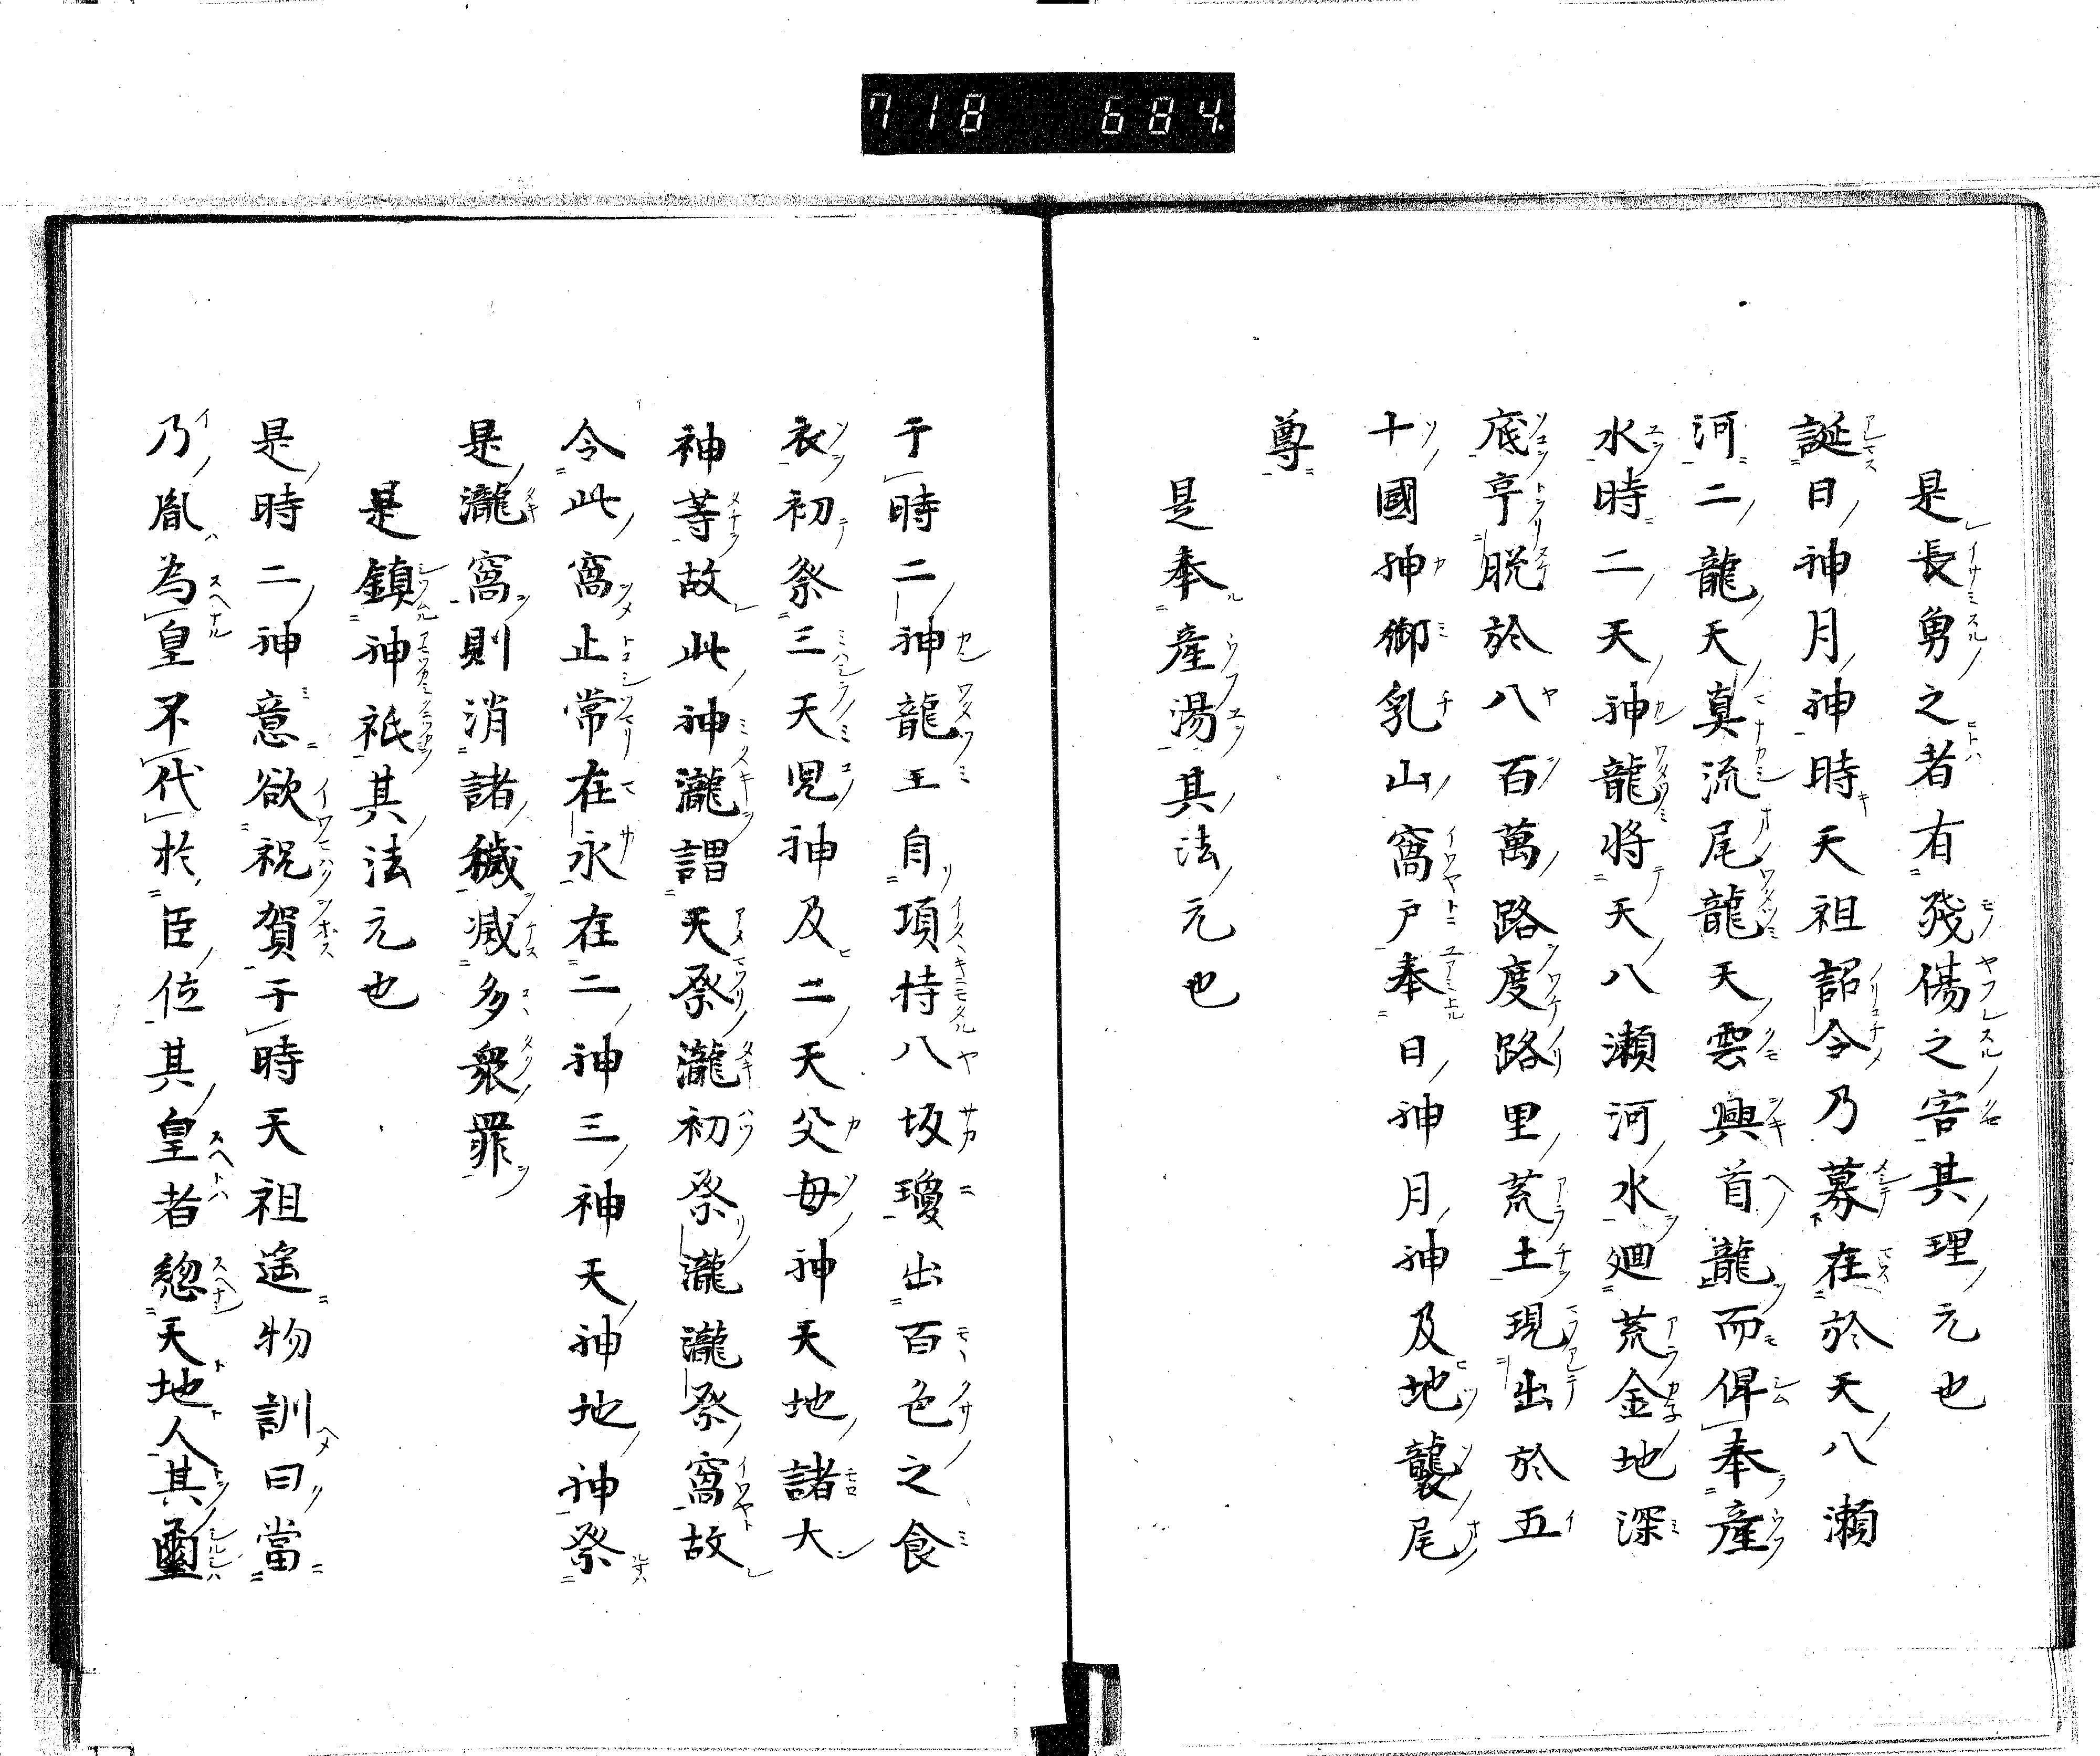 718 684.
是長勇之者有残傷之害其理元也
誕日神月神時天祖詔令乃募在於天八瀬
河二龍天真流尾龍天雲興首龍而俾奉產
水時二天神龍將天八瀬河水廻荒金地深
底亨脱於八百萬路度路里荒土現出於五
十國神御乳山窩戸奉日神月神及地襲尾
尊
是奉產湯其法元也
于時二神龍王自項持八坂瓊出百色之食
衣初祭三天児神及二天父母神天地諸大
神等故此神瀧謂天祭瀧初祭瀧瀧祭窩故
今此窩止常在永在二神三神天神地神祭
是瀧窩則消諸穢滅多衆罪
是鎮神祇其法元也
是時二神意欲祝賀于時天祖遙物訓曰當
乃胤為皇不代於臣位其皇者惣天地人其璽